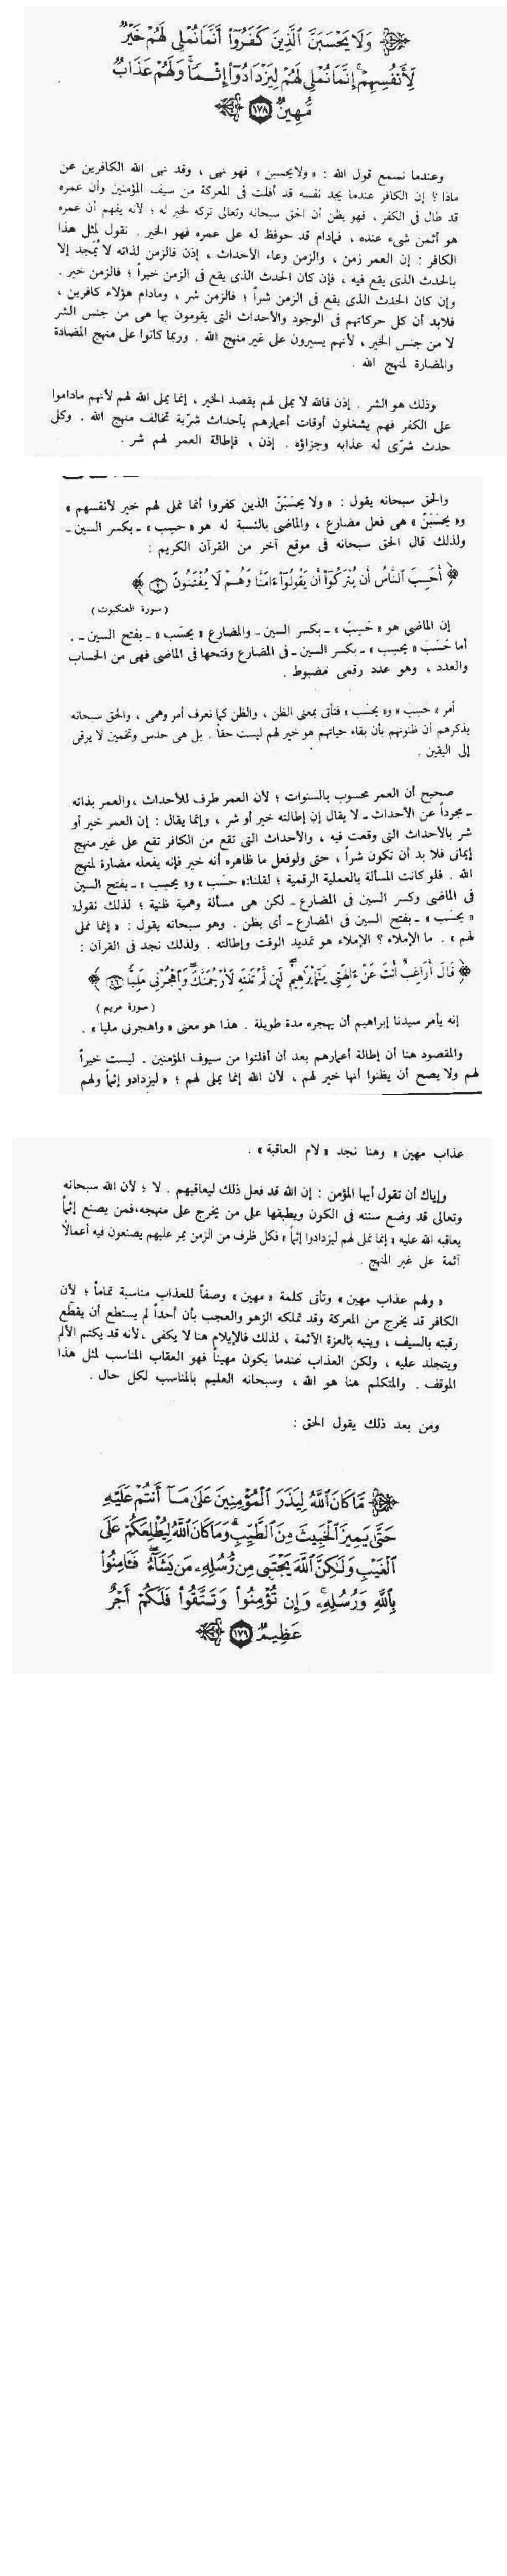 وَلَا يَحْسَبَنَّ ٱلَّذِينَ كَفَرُوٓا۟ أَنَّمَا نُمْلِى لَهُمْ خَيْرٌ
لِّأَنفُسِهِمْ إِنَّمَا نُمْلِى لَهُمْ لِيَزْدَادُوٓا۟ إِثْمًا وَلَهُمْ عَذَابٌ
مُّهِينٌ ١٧٨
وعندما نسمع قول الله : « ولا يحسبن » فهو نهى ، وقد نهى الله الكافرين عن
ماذا ؟ إن الكافر عندما يجد نفسه قد أفلت فى المعركة من سيف المؤمنين وأن عمره
قد طال فى الكفر ، فهو يظن أن الحق سبحانه وتعالى تركه لخير له ؛ لأنه يفهم أن عمره
هو أثمن شىء عنده ، فمادام قد حوفظ له على عمره فهو الخير . نقول لمثل هذا
الكافر : إن العمر زمن ، والزمن وعاء الأحداث ، إذن فالزمن لذاته لا يُمجد إلا
بالحدث الذى يقع فيه ، فإن كان الحدث الذى يقع فى الزمن خيراً ؛ فالزمن خير .
وإن كان الحدث الذى يقع فى الزمن شراً ؛ فالزمن شر ، ومادام هؤلاء كافرين ،
فلابد أن كل حركاتهم فى الوجود والأحداث التى يقومون بها هى من جنس الشر
لا من جنس الخير ، لأنهم يسيرون على غير منهج الله . وربما كانوا على منهج المضادة
والمضارة لمنهج الله .
وذلك هو الشر . إذن فالله لا يملى لهم بقصد الخير ، إنما يملى الله لهم لأنهم ماداموا
على الكفر فهم يشغلون أوقات أعمارهم بأحداث شرّية تخالف منهج الله . وكل
حدث شرّى له عذابه وجزاؤه . إذن ، فإطالة العمر لهم شر .
والحق سبحانه يقول : « ولا يحسَبَنّ الذين كفروا أنما نملى لهم خير لأنفسهم »
و« يحسَبَنّ » هى فعل مضارع ، والماضى بالنسبة له هو « حسِب » - بكسر السين -
ولذلك قال الحق سبحانه فى موقع آخر من القرآن الكريم :
﴿ أَحَسِبَ ٱلنَّاسُ أَن يُتْرَكُوٓا۟ أَن يَقُولُوٓا۟ ءَامَنَّا وَهُمْ لَا يُفْتَنُونَ ٢ ﴾
( سورة العنكبوت )
إن الماضى هو « حَسِبَ » - بكسر السين - والمضارع « يحسَب » - بفتح السين - .
أما حَسَبَ « يحسِب » - بكسر السين - فى المضارع وفتحها فى الماضى فهى من الحساب
والعدد ، وهو عدد رقمى مضبوط .
أمر « حسِب » و« يحسَب » فتأتى بمعنى الظن ، والظن كما نعرف أمر وهمى ، والحق سبحانه
يذكرهم أن ظنونهم بأن بقاء حياتهم هو خير لهم ليست حقاً . بل هى حدس وتخمين لا يرقى
إلى اليقين .
صحيح أن العمر محسوب بالسنوات ؛ لأن العمر ظرف للأحداث ، والعمر بذاته
- مجرداً عن الأحداث - لا يقال إن إطالته خير أو شر ، وإنما يقال : إن العمر خير أو
شر بالأحداث التى وقعت فيه ، والأحداث التى تقع من الكافر تقع على غير منهج
إيمانى فلا بد أن تكون شراً ، حتى ولو فعل ما ظاهره أنه خير فإنه يفعله مضارة لمنهج
الله . فلو كانت المسألة بالعملية الرقمية ؛ لقلنا: « حسَب » و« يحسِب » - بفتح السين
فى الماضى وكسر السين فى المضارع - لكن هى مسألة وهمية ظنية ؛ لذلك نقول:
« يحسَب » - بفتح السين فى المضارع - أى يظن . وهو سبحانه يقول : « إنما نملى
لهم » . ما الإملاء ؟ الإملاء هو تمديد الوقت وإطالته . ولذلك نجد فى القرآن :
﴿ قَالَ أَرَاغِبٌ أَنتَ عَنْ ءَالِهَتِى يَٰٓإِبْرَٰهِيمُ لَئِن لَّمْ تَنتَهِ لَأَرْجُمَنَّكَ وَٱهْجُرْنِى مَلِيًّا ٤٦ ﴾
( سورة مريم )
إنه يأمر سيدنا إبراهيم أن يهجره مدة طويلة . هذا هو معنى « واهجرنى مليا » .
والمقصود هنا أن إطالة أعمارهم بعد أن أفلتوا من سيوف المؤمنين . ليست خيراً
لهم ولا يصح أن يظنوا أنها خير لهم ، لأن الله إنما يملى لهم ؛ « ليزدادوا إثماً ولهم
عذاب مهين » وهنا نجد « لام العاقبة » .
وإياك أن تقول أيها المؤمن : إن الله قد فعل ذلك ليعاقبهم . لا ؛ لأن الله سبحانه
وتعالى قد وضع سننه فى الكون ويطبقها على من يخرج على منهجه، فمن يصنع إثماً
يعاقبه الله عليه « إنما نملى لهم ليزدادوا إثماً » فكل ظرف من الزمن يمر عليهم يصنعون فيه أعمالاً
آثمة على غير المنهج .
« ولهم عذاب مهين » وتأتى كلمة « مهين » وصفاً للعذاب مناسبة تماماً ؛ لأن
الكافر قد يخرج من المعركة وقد تملكه الزهو والعجب بأن أحداً لم يستطع أن يقطع
رقبته بالسيف ، ويتيه بالعزة الآثمة ، لذلك فالإيلام هنا لا يكفى ، لأنه قد يكتم الألم
ويتجلد عليه ، ولكن العذاب عندما يكون مهيناً فهو العقاب المناسب لمثل هذا
الموقف . والمتكلم هنا هو الله ، وسبحانه العليم بالمناسب لكل حال .
ومن بعد ذلك يقول الحق :
مَّا كَانَ ٱللَّهُ لِيَذَرَ ٱلْمُؤْمِنِينَ عَلَىٰ مَآ أَنتُمْ عَلَيْهِ
حَتَّىٰ يَمِيزَ ٱلْخَبِيثَ مِنَ ٱلطَّيِّبِ وَمَا كَانَ ٱللَّهُ لِيُطْلِعَكُمْ عَلَى
ٱلْغَيْبِ وَلَٰكِنَّ ٱللَّهَ يَجْتَبِى مِن رُّسُلِهِۦ مَن يَشَآءُ فَـَٔامِنُوا۟
بِٱللَّهِ وَرُسُلِهِۦ وَإِن تُؤْمِنُوا۟ وَتَتَّقُوا۟ فَلَكُمْ أَجْرٌ
عَظِيمٌ ١٧٩